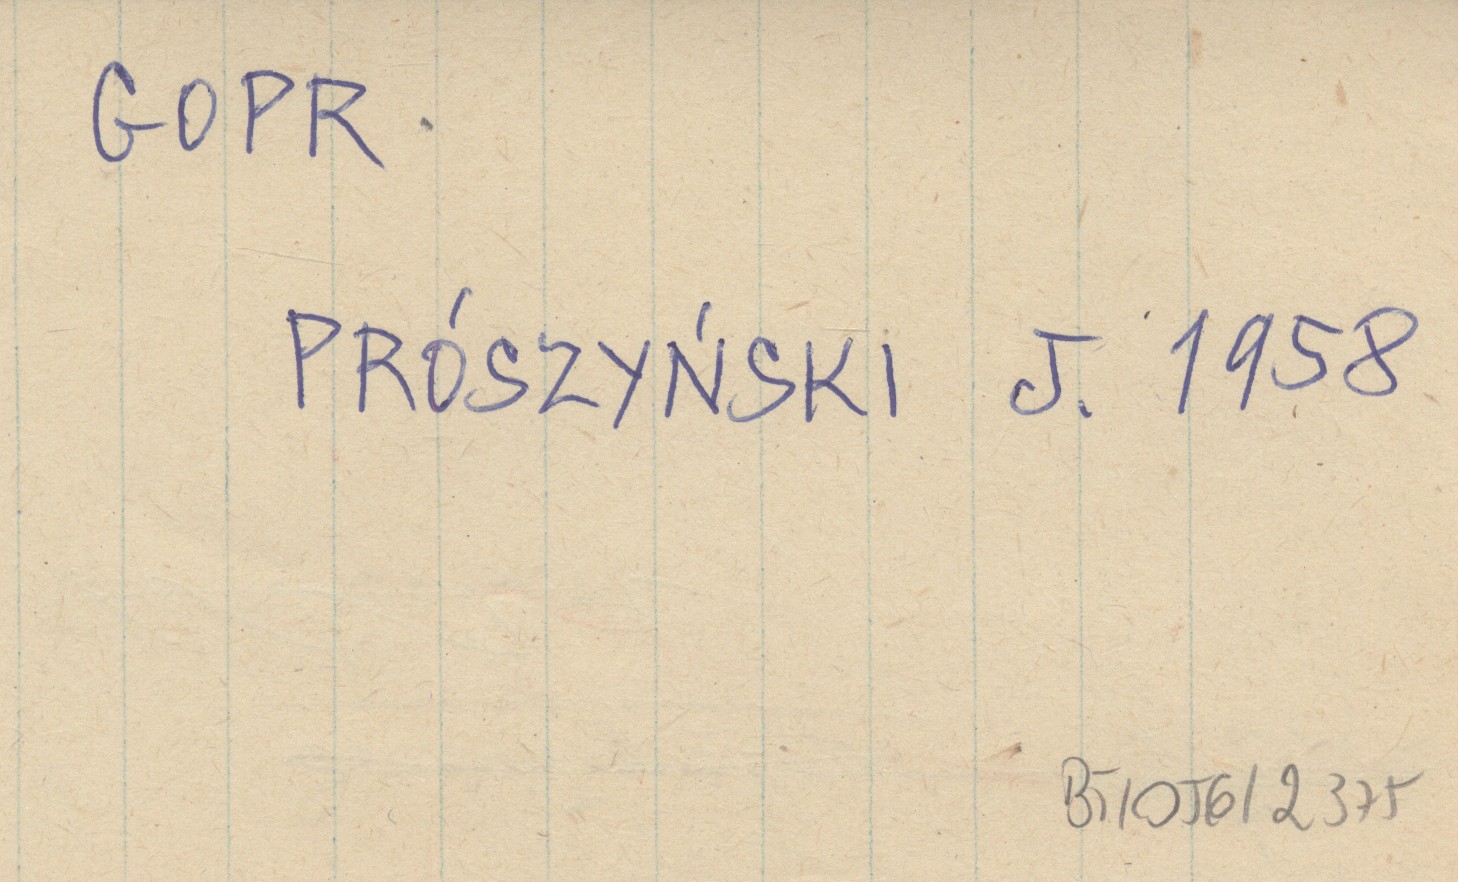 GOPR.
PRÓSZYŃSKI J. 1958
BT/OJG/2375